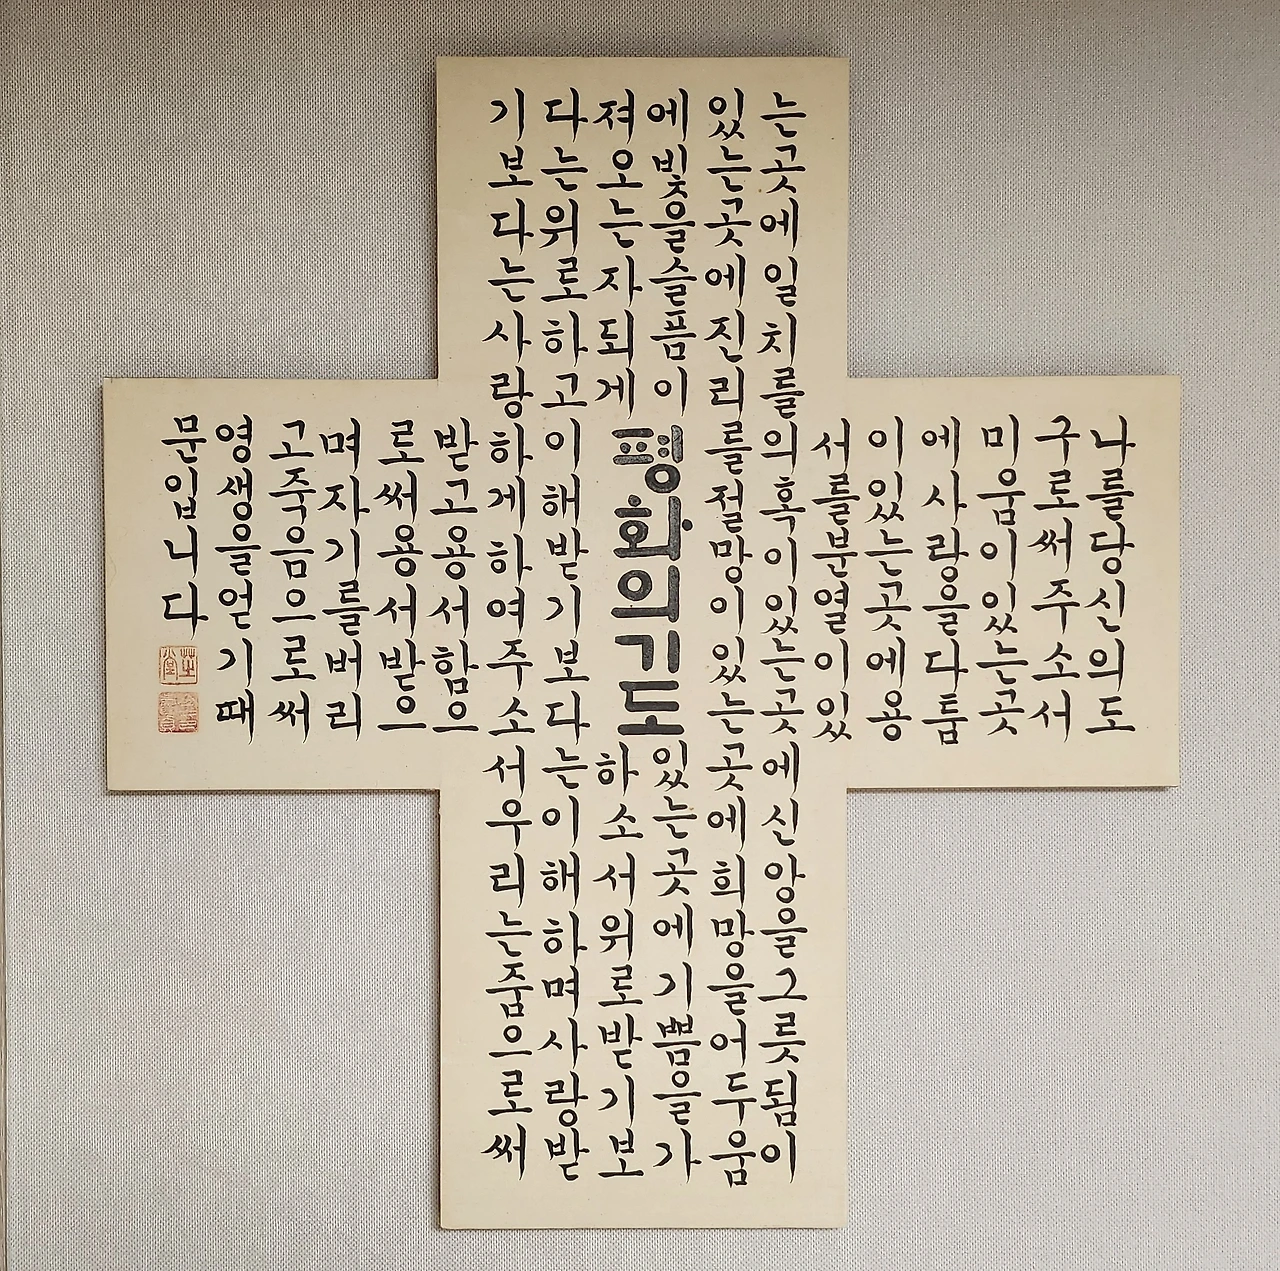 평화의기도
나를당신의도
구로써주소서
미움이있는곳
에사랑을다툼
이있는곳에용
서를분열이있
는곳에일치를의혹이있는곳에신앙을그릇됨이
있는곳에진리를절망이있는곳에희망을어두움
에빛을슬픔이있는곳에기쁨을가
져오는자되게하소서위로받기보
다는위로하고이해받기보다는이해하며사랑받
기보다는사랑하게하여주소서우리는줌으로써
받고용서함으
로써용서받으
며자기를버리
고죽음으로써
영생을얻기때
문입니다